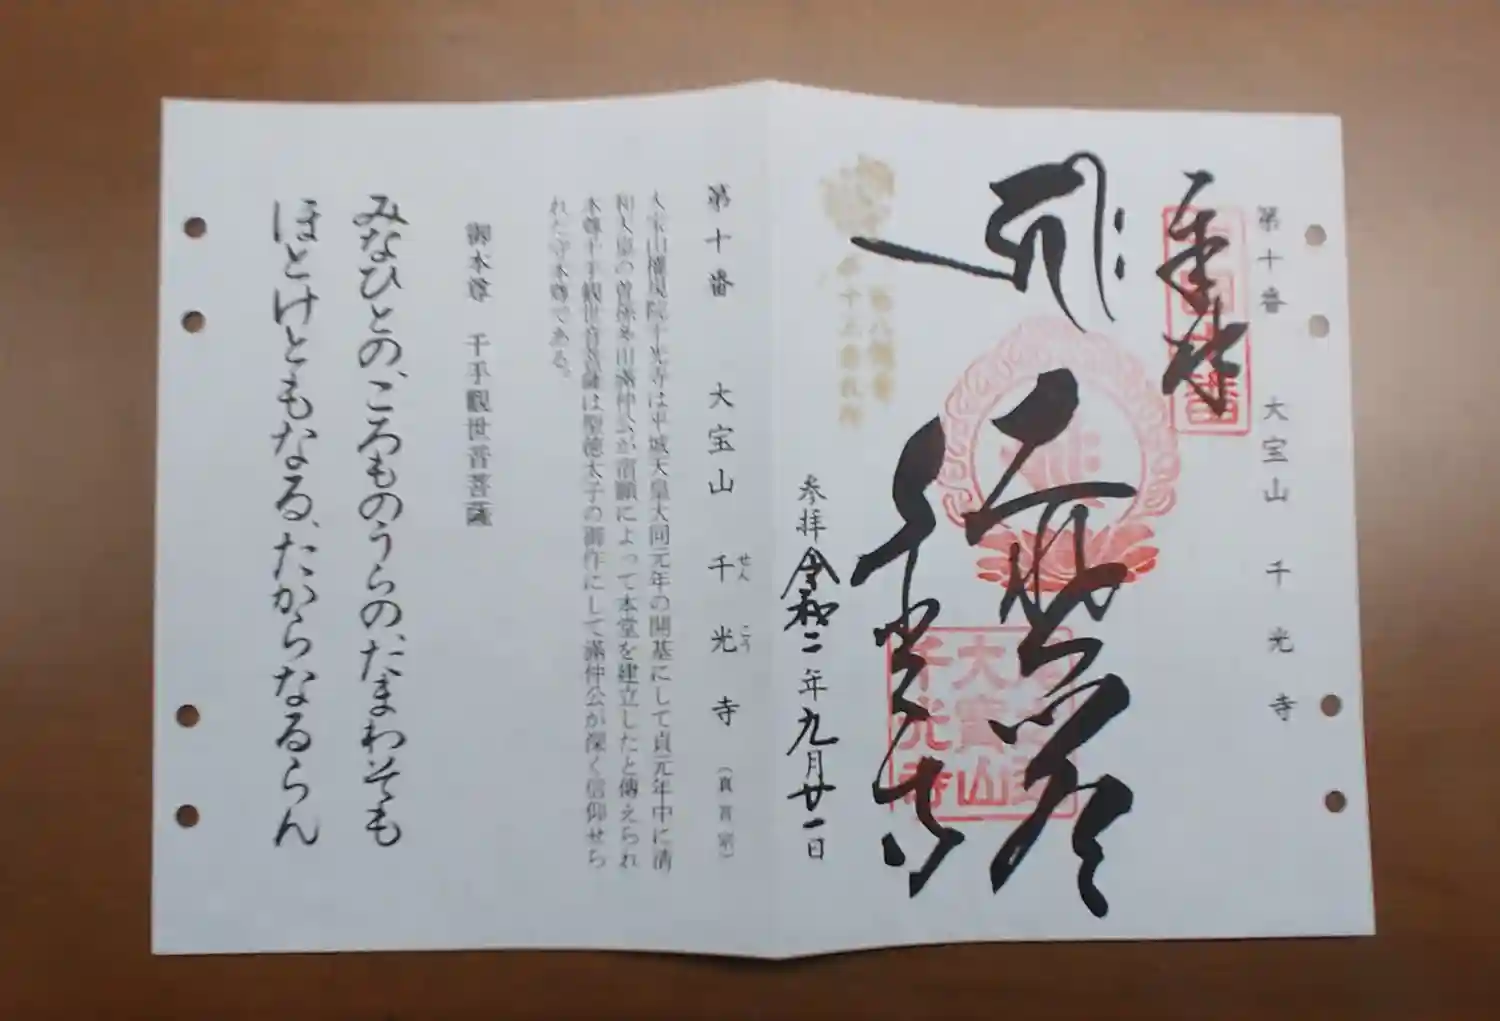 第十番 大宝山 千光寺
奉拝
千光寺
大寳山
千光寺
参拝 令和二年九月廿一日
第十番 大宝山 千光寺 (真言宗)
せんこう
大宝山權現院千光寺は平城天皇大同元年の開基にして貞元年中に清
和天皇の曽孫多田滿仲公が宿願によって本堂を建立したと傳えられ
本尊千手觀世音菩薩は聖徳太子の御作にして滿仲公が深く信仰せら
れた守本尊である。
御本尊 千手觀世音菩薩
みなひとの、ころものうらの、たまわそも
ほとけともなる、たからなるらん